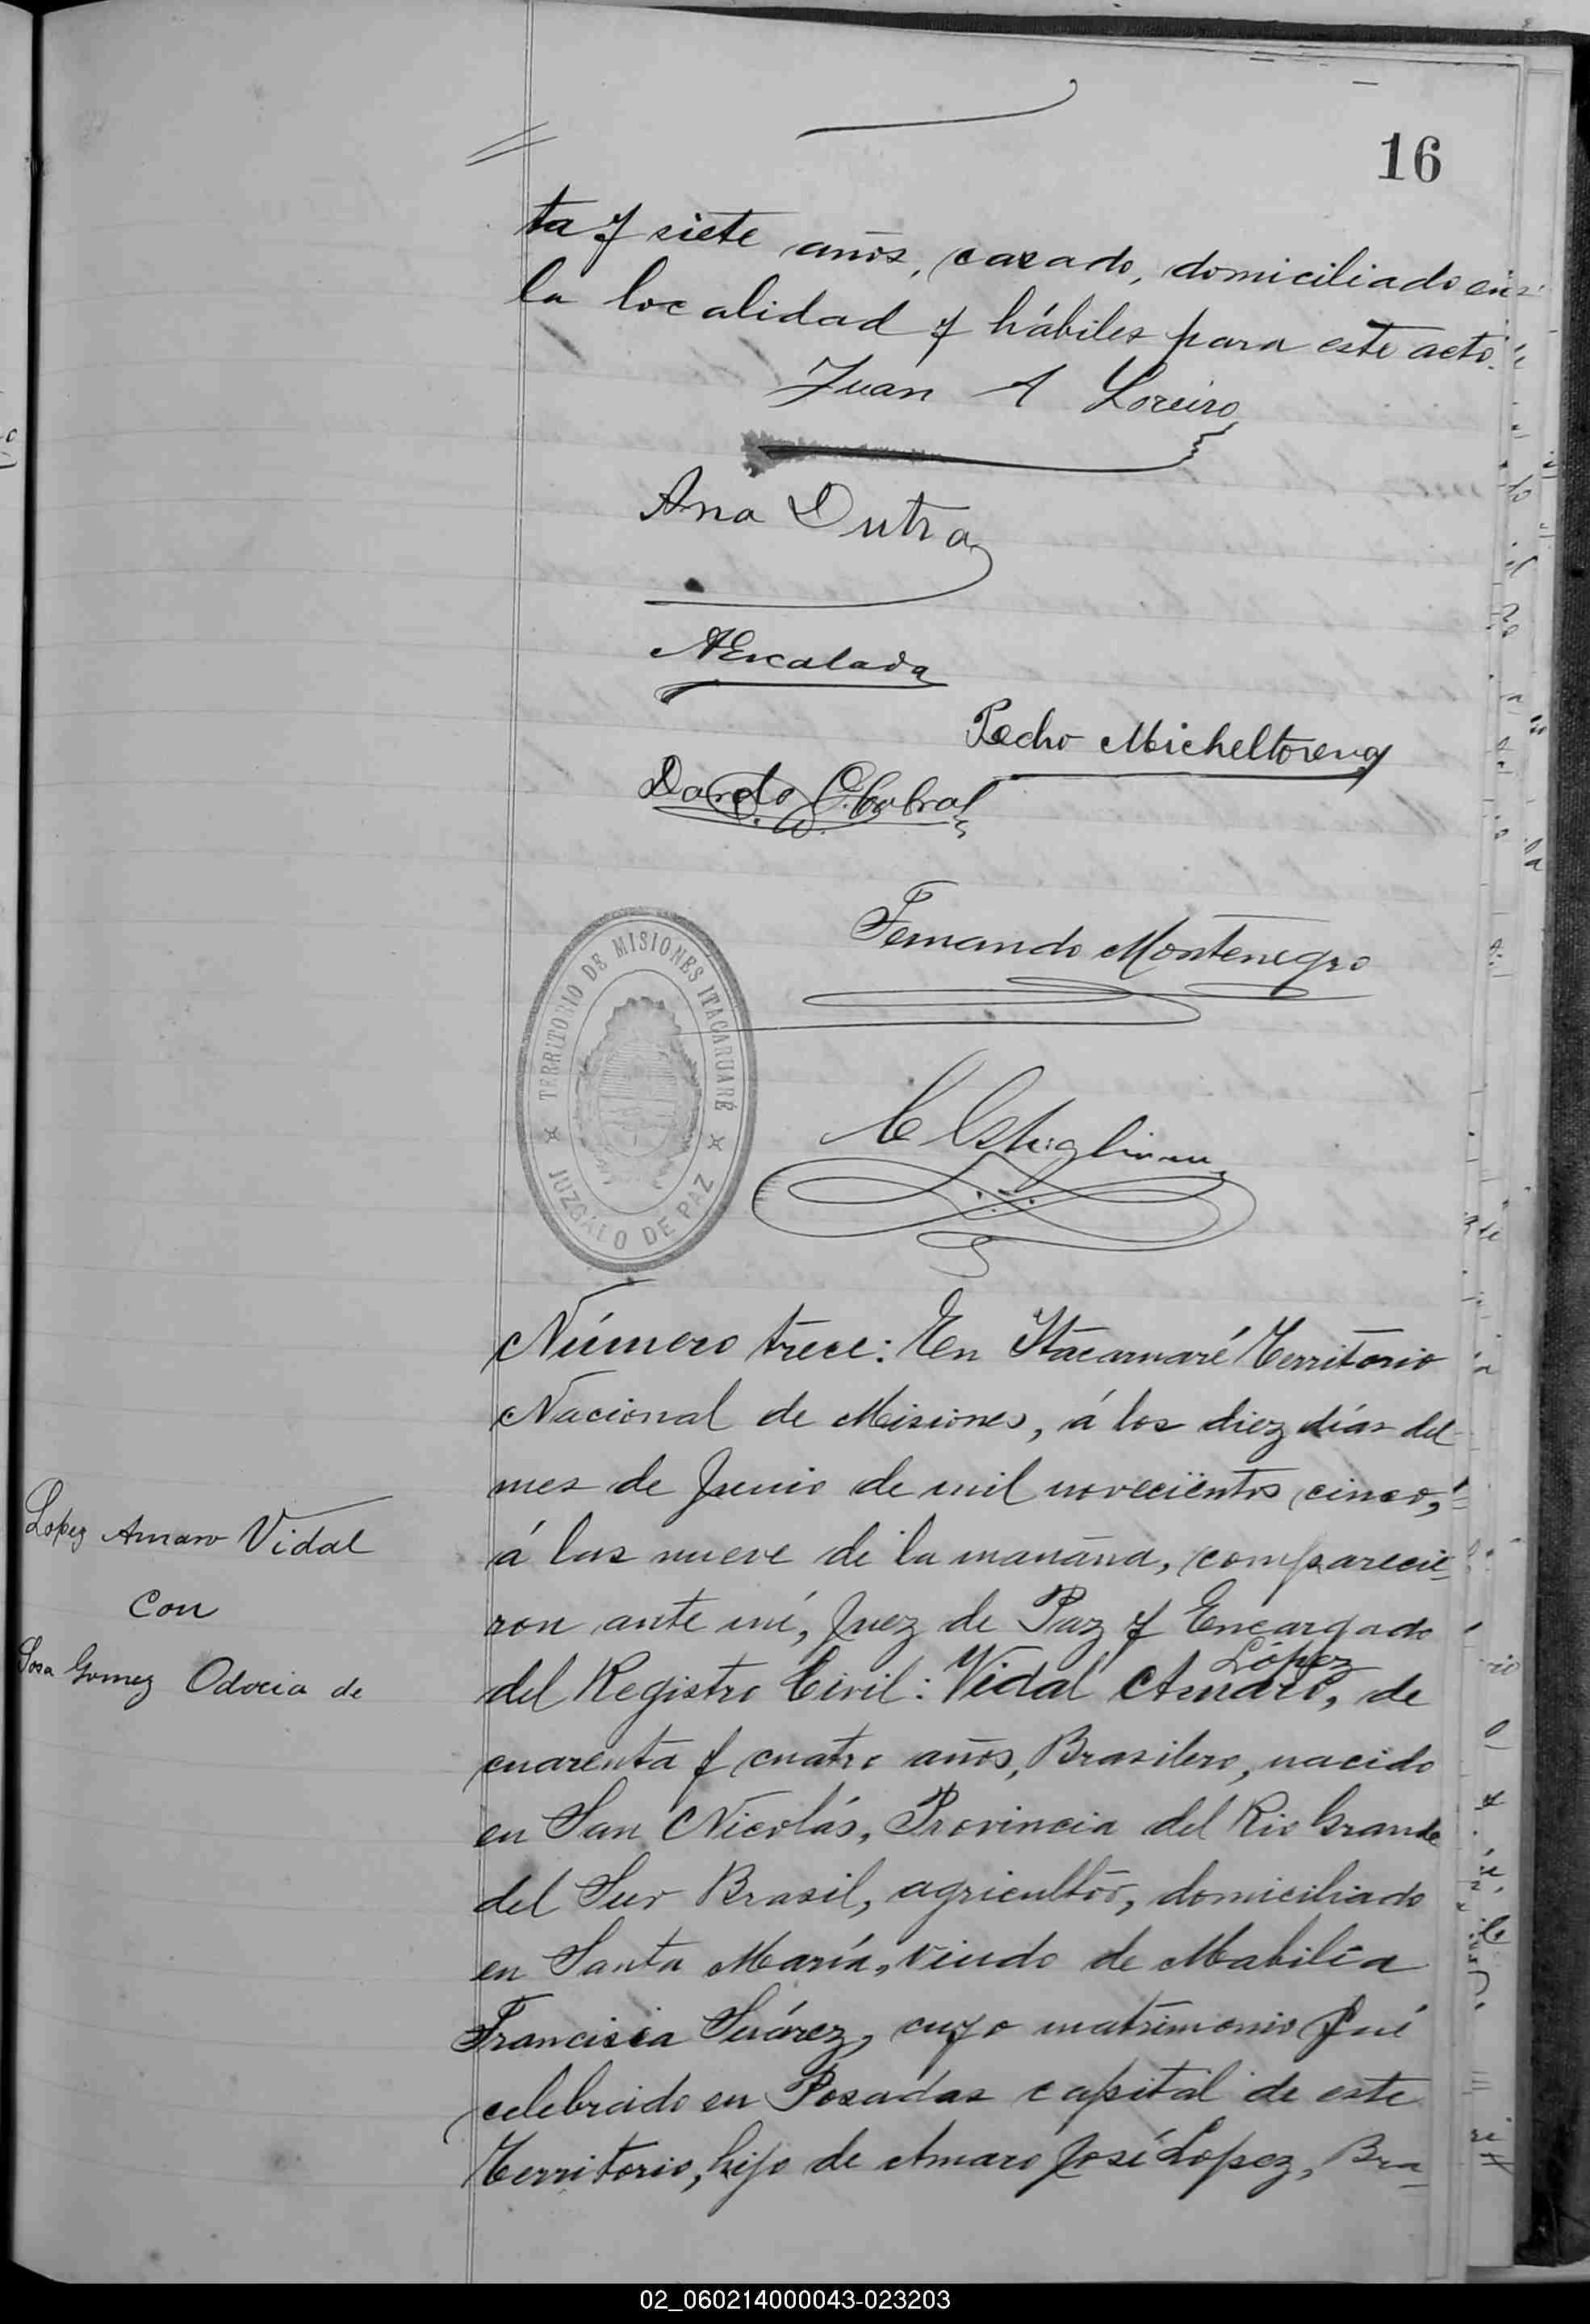 16
ta y siete años, casado, domiciliado en
la localidad y hábiles para este acto.
Juan A Loreiro
Ana Dutra
A Escalada
Pedro Micheltorena
Dardo C. Cabral
Fernando Montenegro
TERRITORIO DE MISIONES ITACARUARÉ
JUZGADO DE PAZ
Número trece: En Itacaruaré Territorio
Nacional de Misiones, á los diez días del
mes de Junio de mil novecientos cinco,
á las nueve de la mañana, comparecie-
ron ante mí, Juez de Paz y Encargado
López
del Registro Civil: Vidal Amaro, de
cuarenta y cuatro años, Brasilero, nacido
en San Nicolás, Provincia del Rio Grande
del Sur Brasil, agricultor, domiciliado
en Santa María, viudo de Mabilia
Francisca Suárez, cuyo matrimonio fué
celebrado en Posadas capital de este
Territorio, hijo de Amaro José Lopez, Bra-
Lopez Amaro Vidal
con
Sosa Gomez Odocia de
02_060214000043-023203